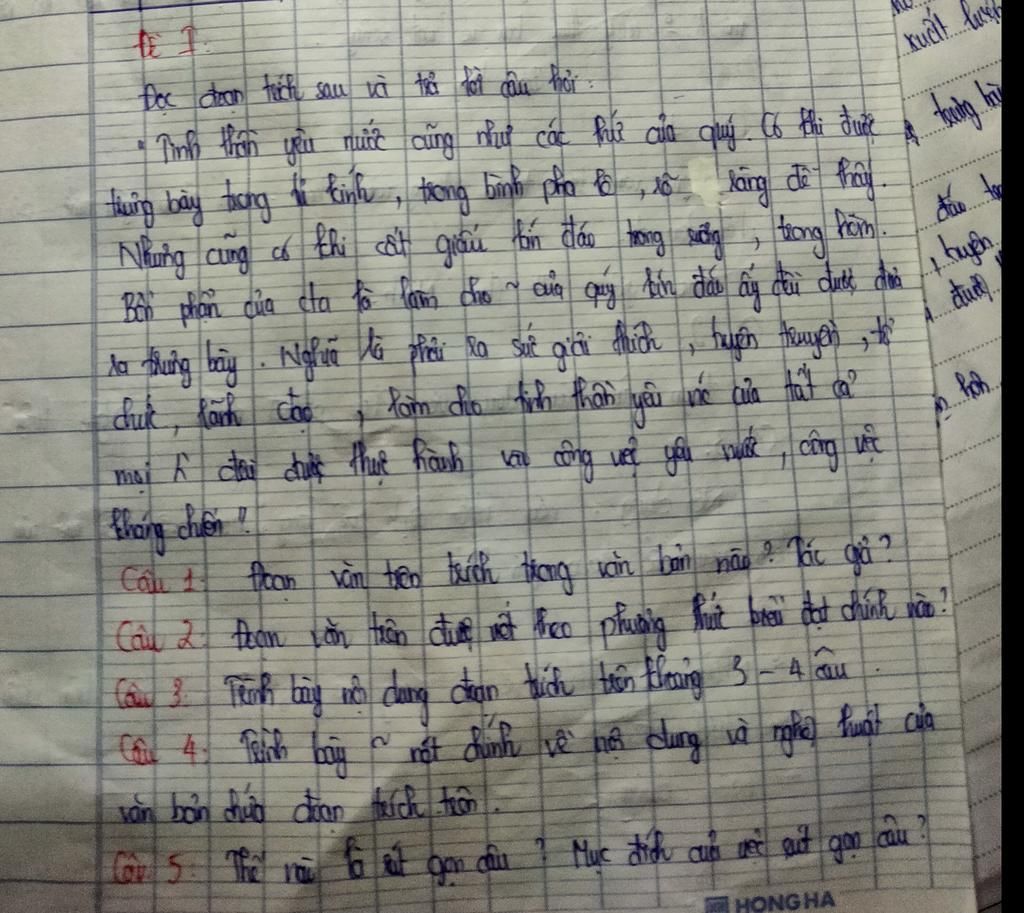 Đề I.
Đọc đoạn trích sau và trả lời câu hỏi:
"Tinh thần yêu nước cũng như các thứ của quý. Có khi được
trưng bày trong tủ kính, trong bình pha lê, rõ ràng dễ thấy.
Nhưng cũng có khi cất giấu kín đáo trong rương, trong hòm.
Bổn phận của cta là làm cho ~ của quý kín đáo ấy đều được đưa
ra trưng bày. Nghĩa là phải ra sức giải thích, tuyên truyền, tổ
chức, lãnh đạo, làm cho tinh thần yêu nc của tất cả
mọi đều được thực hành vào công việc yêu nước, công việc
kháng chiến"
Câu 1: Đoạn văn trên trích trong văn bản nào? Tác giả?
Câu 2: Đoạn văn trên được viết theo phương thức biểu đạt chính nào?
Câu 3: Trình bày nội dung đoạn trích trên khoảng 3 - 4 câu.
Câu 4: Trình bày ~ nét chính về nội dung và nghệ thuật của
văn bản chứa đoạn trích trên.
Câu 5: Thế nào là rút gọn câu? Mục đích của việc rút gọn câu?
HONG HA
xuất
trưng bày